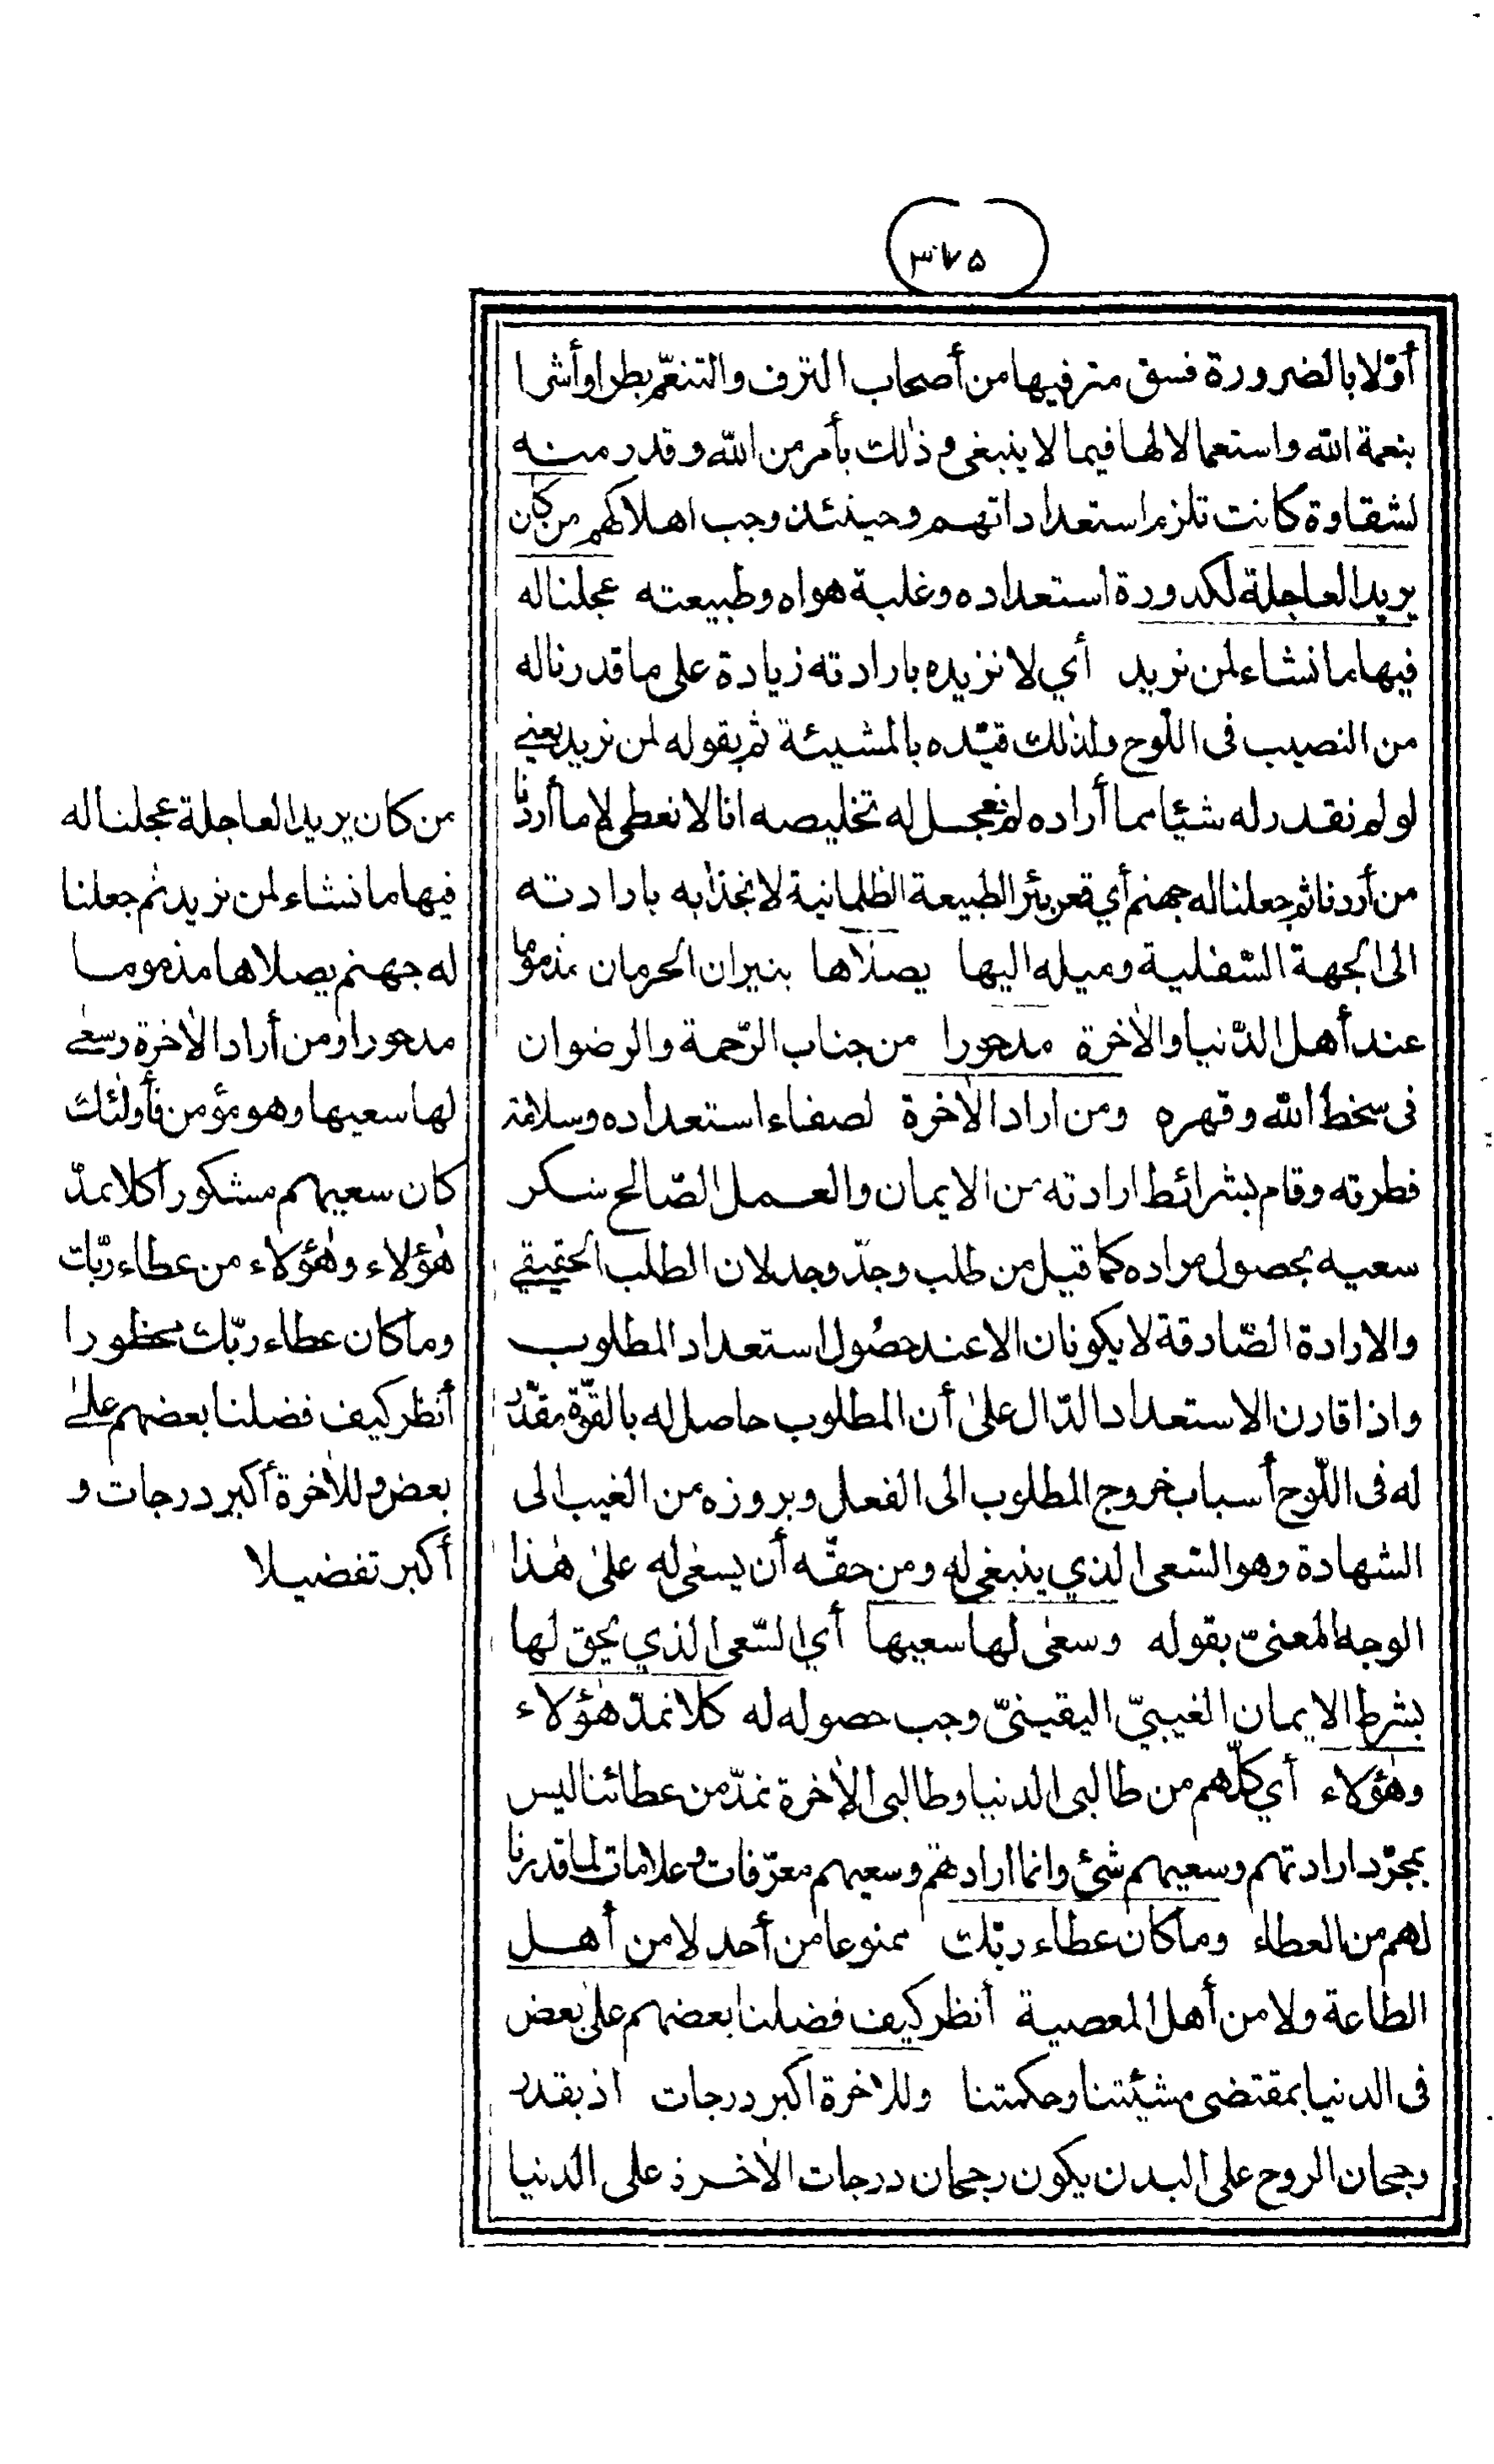 ٣٧٥
أوّلا بالضرورة فسق مترفيها من أصحاب الترف والتنعّم بطرا وأشرا
بنعمة الله واستعمالا لها فيما لا ينبغي وذلك بأمر من الله وقدر منه
لشقاوة كانت تلزم استعداداتهم وحينئذ وجب اهلاكهم من كان
يريد العاجلة لكدورة استعداده وغلبة هواه وطبيعته عجلنا له
فيها ما نشاء لمن نريد أي لا نزيده بارادته زيادة على ما قدرنا له
من النصيب فى اللّوح ولذلك قيّده بالمشيئة ثم بقوله لمن نريد يعنى
لو لم نقدر له شيئا مما أراده لم نعجل له تخليصه انا لا نعطى الا ما أردنا
من أردنا ثم جعلنا له جهنم أي قعر بئر الطبيعة الظلمانية لانجذابه بارادته
الى الجهة السّفلية وميله اليها يصلاها بنيران الحرمان مذموما
عند أهل الدّنيا والآخرة مدحورا من جناب الرّحمة والرضوان
فى سخط الله وقهره ومن اراد الآخرة لصفاء استعداده وسلامة
فطرته وقام بشرائط ارادته من الايمان والعمل الصّالح شكر
سعيه بحصول مراده كما قيل من طلب وجدّ وجد لان الطلب الحقيقي
والارادة الصّادقة لا يكونان الا عند حصُول استعداد المطلوب
واذا قارن الاستعداد الدّال على أن المطلوب حاصل له بالقوّة مقدّر
له فى اللّوح أسباب خروج المطلوب الى الفعل وبروزه من الغيب الى
الشهادة وهو السّعى الذي ينبغى له ومن حقّه أن يسعى له على هٰذا
الوجه المعنىّ بقوله وسعى لها سعيها أي السّعى الذي يحق لها
بشرط الايمان الغيبيّ اليقينىّ وجب حصوله له كلا نمدّ هٰؤلاء
وهٰؤلاء أي كلّهم من طالبى الدنيا وطالبى الآخرة نمدّ من عطائنا ليس
بمجرّد ارادتهم وسعيهم شئ وانما ارادتهم وسعيهم معرّفات وعلامات لما قدرنا
لهم من العطاء وما كان عطاء ربّك ممنوعا من أحد لا من أهل
الطاعة ولا من أهل المعصية أنظر كيف فضلنا بعضهم على بعض
فى الدنيا بمقتضى مشيئتنا وحكمتنا وللآخرة اكبر درجات اذ بقدر
رجحان الروح على البدن يكون رجحان درجات الآخرة على الدنيا
من كان يريد العاجلة عجلنا له
فيها ما نشاء لمن نريد ثم جعلنا
له جهنم يصلاها مذموما
مدحورا ومن أراد الآخرة وسعى
لها سعيها وهو مؤمن فأولئك
كان سعيهم مشكورا كلا نمدّ
هٰؤلاء وهٰؤلاء من عطاء ربّك
وما كان عطاء ربّك محظورا
أنظر كيف فضلنا بعضهم على
بعض وللآخرة أكبر درجات و
أكبر تفضيلا